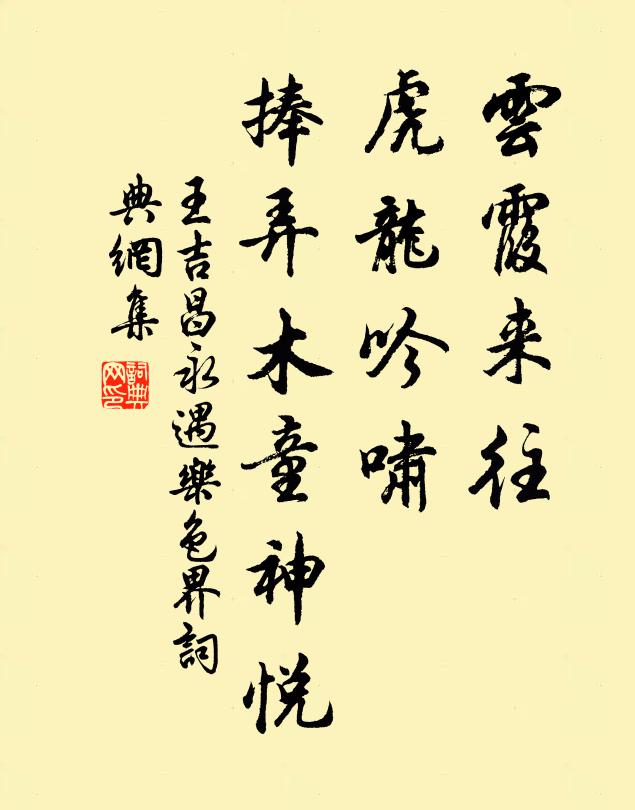 雲霞来往
虎龍吟嘯
捧弄木童神悅
王吉昌永遇樂色界詞
典網集
詞典網印